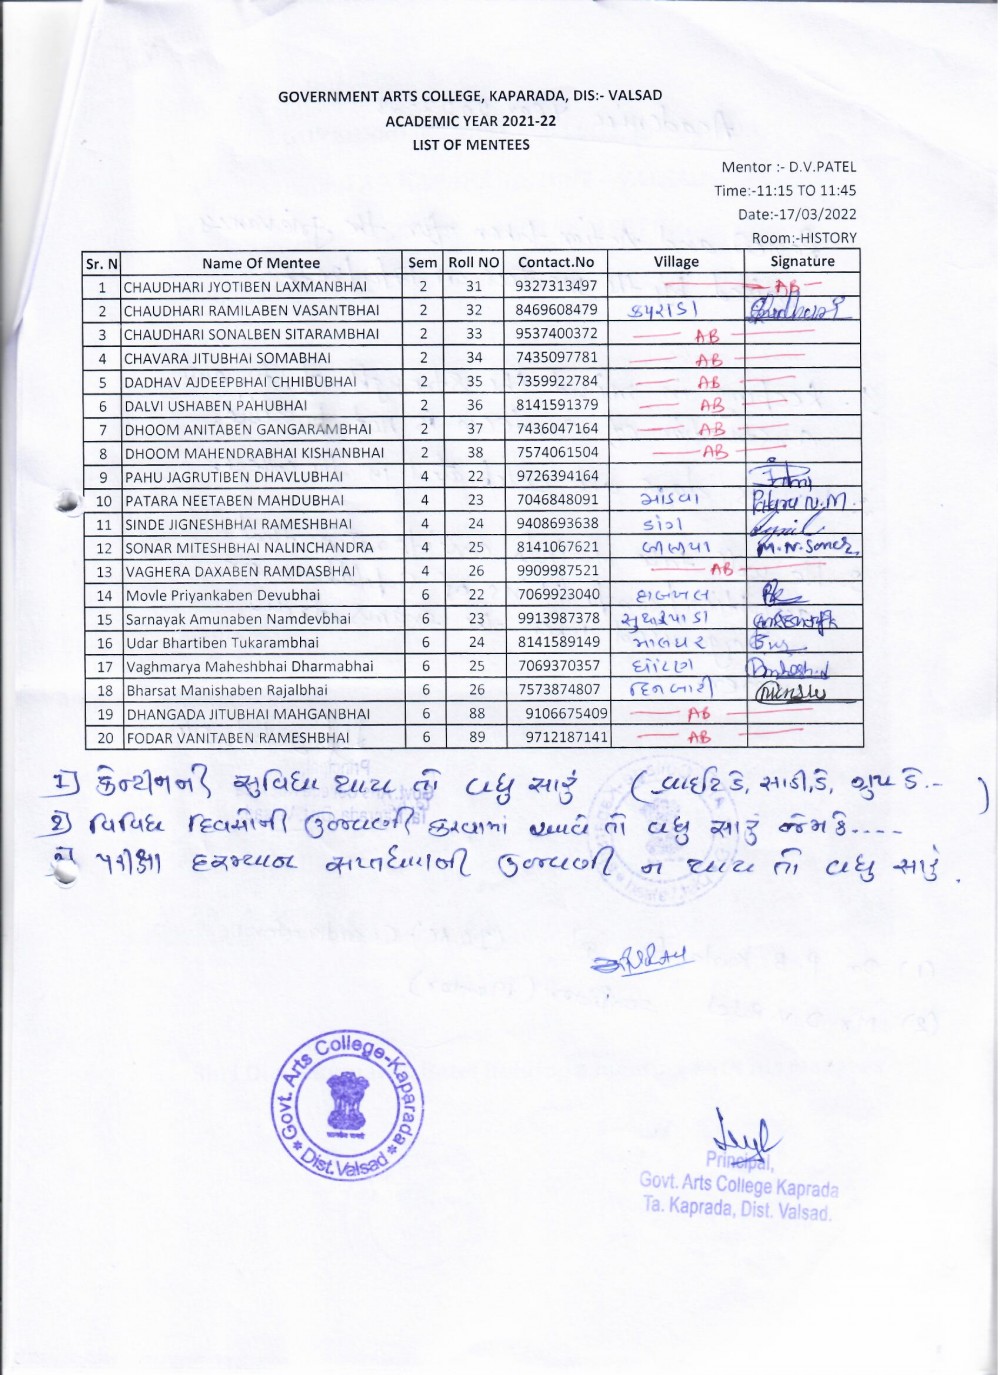 GOVERNMENT ARTS COLLEGE, KAPARADA, DIS:- VALSAD
ACADEMIC YEAR 2021-22
LIST OF MENTEES
Mentor :- D.V.PATEL
Time:-11:15 TO 11:45
Date:-17/03/2022
Room:-HISTORY
Sr. N Name Of Mentee Sem Roll NO Contact.No Village Signature
1 CHAUDHARI JYOTIBEN LAXMANBHAI 2 31 9327313497 AB
2 CHAUDHARI RAMILABEN VASANTBHAI 2 32 8469608479 કપરાડા
3 CHAUDHARI SONALBEN SITARAMBHAI 2 33 9537400372 AB
4 CHAVARA JITUBHAI SOMABHAI 2 34 7435097781 AB
5 DADHAV AJDEEPBHAI CHHIBUBHAI 2 35 7359922784 AB
6 DALVI USHABEN PAHUBHAI 2 36 8141591379 AB
7 DHOOM ANITABEN GANGARAMBHAI 2 37 7436047164 AB
8 DHOOM MAHENDRABHAI KISHANBHAI 2 38 7574061504 AB
9 PAHU JAGRUTIBEN DHAVLUBHAI 4 22 9726394164
10 PATARA NEETABEN MAHDUBHAI 4 23 7046848091 માંડવા Patara N.M.
11 SINDE JIGNESHBHAI RAMESHBHAI 4 24 9408693638
12 SONAR MITESHBHAI NALINCHANDRA 4 25 8141067621 M.N.Soner
13 VAGHERA DAXABEN RAMDASBHAI 4 26 9909987521 AB
14 Movle Priyankaben Devubhai 6 22 7069923040
15 Sarnayak Amunaben Namdevbhai 6 23 9913987378
16 Udar Bhartiben Tukarambhai 6 24 8141589149 માલઘર
17 Vaghmarya Maheshbhai Dharmabhai 6 25 7069370357 ઘોટણ
18 Bharsat Manishaben Rajalbhai 6 26 7573874807 દિનબારી
19 DHANGADA JITUBHAI MAHGANBHAI 6 88 9106675409 AB
20 FODAR VANITABEN RAMESHBHAI 6 89 9712187141 AB
1) કેન્ટીનની સુવિધા થાય તો વધુ સારું ( સાડી, ડે, ગ્રુપ ડે.- )
2) વિવિધ દિવસોની ઉજવણી કરવામાં આવે તો વધુ સારું જેમકે....
3) પરીક્ષા દરમ્યાન સપ્તધારાની ઉજવણી ન થાય તો વધુ સારું.
Govt. Arts College-Kaparada
Dist.Valsad
Principal,
Govt. Arts College Kaprada
Ta. Kaprada, Dist. Valsad.